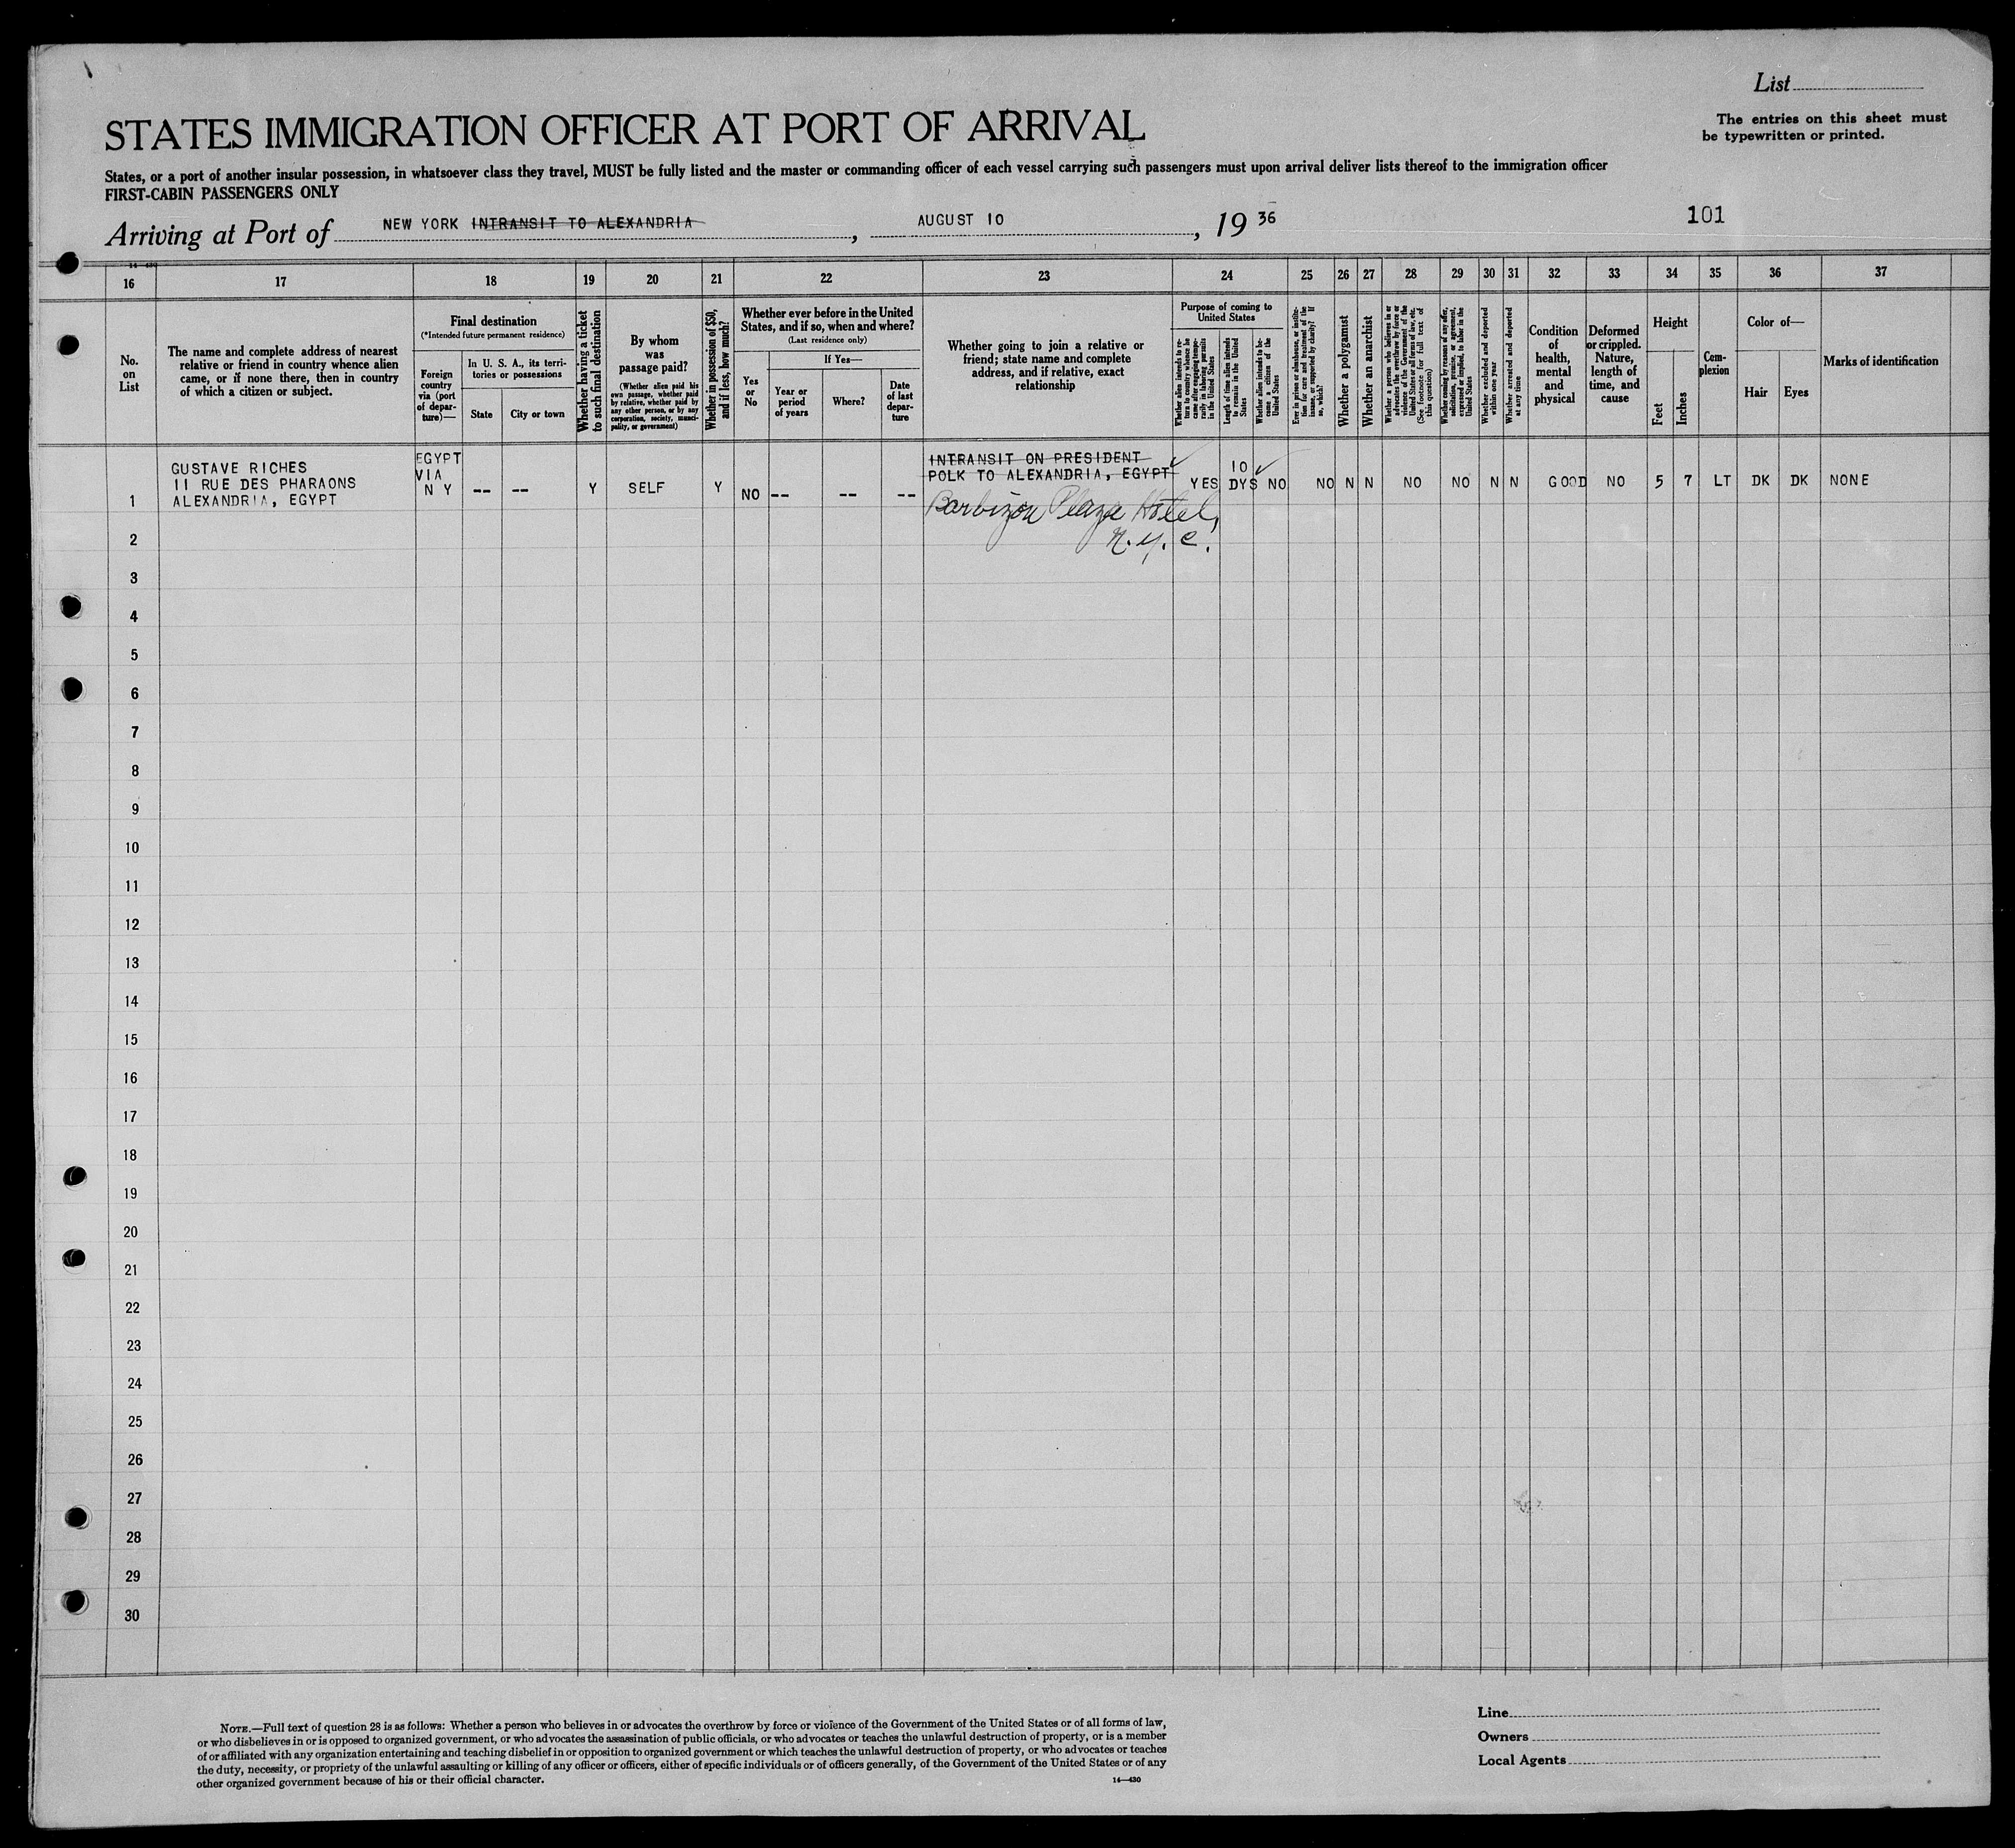 List
STATES IMMIGRATION OFFICER AT PORT OF ARRIVAL
The entries on this sheet must
be typewritten or printed.
States, or a port of another insular possession, in whatsoever class they travel, MUST be fully listed and the master or commanding officer of each vessel carrying such passengers must upon arrival deliver lists thereof to the immigration officer
FIRST-CABIN PASSENGERS ONLY
Arriving at Port of NEW YORK INTRANSIT TO ALEXANDRIA, AUGUST 10, 1936
101
16 17 18 19 20 21 22 23 24 25 26 27 28 29 30 31 32 33 34 35 36 37
No.
on
List
The name and complete address of nearest
relative or friend in country whence alien
came, or if none there, then in country
of which a citizen or subject.
Final destination
(*Intended future permanent residence)
Foreign
country
via (port
of depar-
ture)—
In U. S. A., its terri-
tories or possessions
State
City or town
Whether having a ticket
to such final destination
By whom
was
passage paid?
(Whether alien paid his
own passage, whether paid
by relative, whether paid by
any other person, or by any
corporation, society, munici-
pality, or government)
Whether in possession of $50,
and if less, how much?
Whether ever before in the United
States, and if so, when and where?
(Last residence only)
Yes
or
No
If Yes—
Year or
period
of years
Where?
Date
of last
depar-
ture
Whether going to join a relative or
friend; state name and complete
address, and if relative, exact
relationship
Purpose of coming to
United States
Whether alien intends to re-
turn to country whence he
came after engaging tempo-
rarily in laboring pursuits
in the United States
Length of time alien intends
to remain in the United
States
Whether alien intends to be-
come a citizen of the
United States
Ever in prison or almshouse, or institu-
tion for care and treatment of the
insane, or supported by charity? If
so, which?
Whether a polygamist
Whether an anarchist
Whether a person who believes in or
advocates the overthrow by force or
violence of the Government of the
United States or all forms of law, etc.
(See footnote for full text of
this question)
Whether coming by reason of any offer,
solicitation, promise, or agreement,
expressed or implied, to labor in the
United States
Whether excluded and deported
within one year
Whether arrested and deported
at any time
Condition
of
health,
mental
and
physical
Deformed
or crippled.
Nature,
length of
time, and
cause
Height
Feet
Inches
Com-
plexion
Color of—
Hair
Eyes
Marks of identification
1
GUSTAVE RICHES
11 RUE DES PHARAONS
ALEXANDRIA, EGYPT
EGYPT
VIA
N Y
-- -- Y SELF Y NO -- -- --
INTRANSIT ON PRESIDENT
POLK TO ALEXANDRIA, EGYPT
Barbizon Plaza Hotel,
N.Y.C.
YES
10
DYS
NO NO N N NO NO N N GOOD NO 5 7 LT DK DK NONE
2
3
4
5
6
7
8
9
10
11
12
13
14
15
16
17
18
19
20
21
22
23
24
25
26
27
28
29
30
NOTE.—Full text of question 28 is as follows: Whether a person who believes in or advocates the overthrow by force or violence of the Government of the United States or of all forms of law,
or who disbelieves in or is opposed to organized government, or who advocates the assassination of public officials, or who advocates or teaches the unlawful destruction of property, or is a member
of or affiliated with any organization entertaining and teaching disbelief in or opposition to organized government or which teaches the unlawful destruction of property, or who advocates or teaches
the duty, necessity, or propriety of the unlawful assaulting or killing of any officer or officers, either of specific individuals or of officers generally, of the Government of the United States or of any
other organized government because of his or their official character.
14—430
Line
Owners
Local Agents